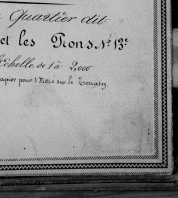 Quartier dit
et les Rons, Nº 13e
Echelle de 1 à 2,000
Papier pour l'Mètre sur le Terrain,